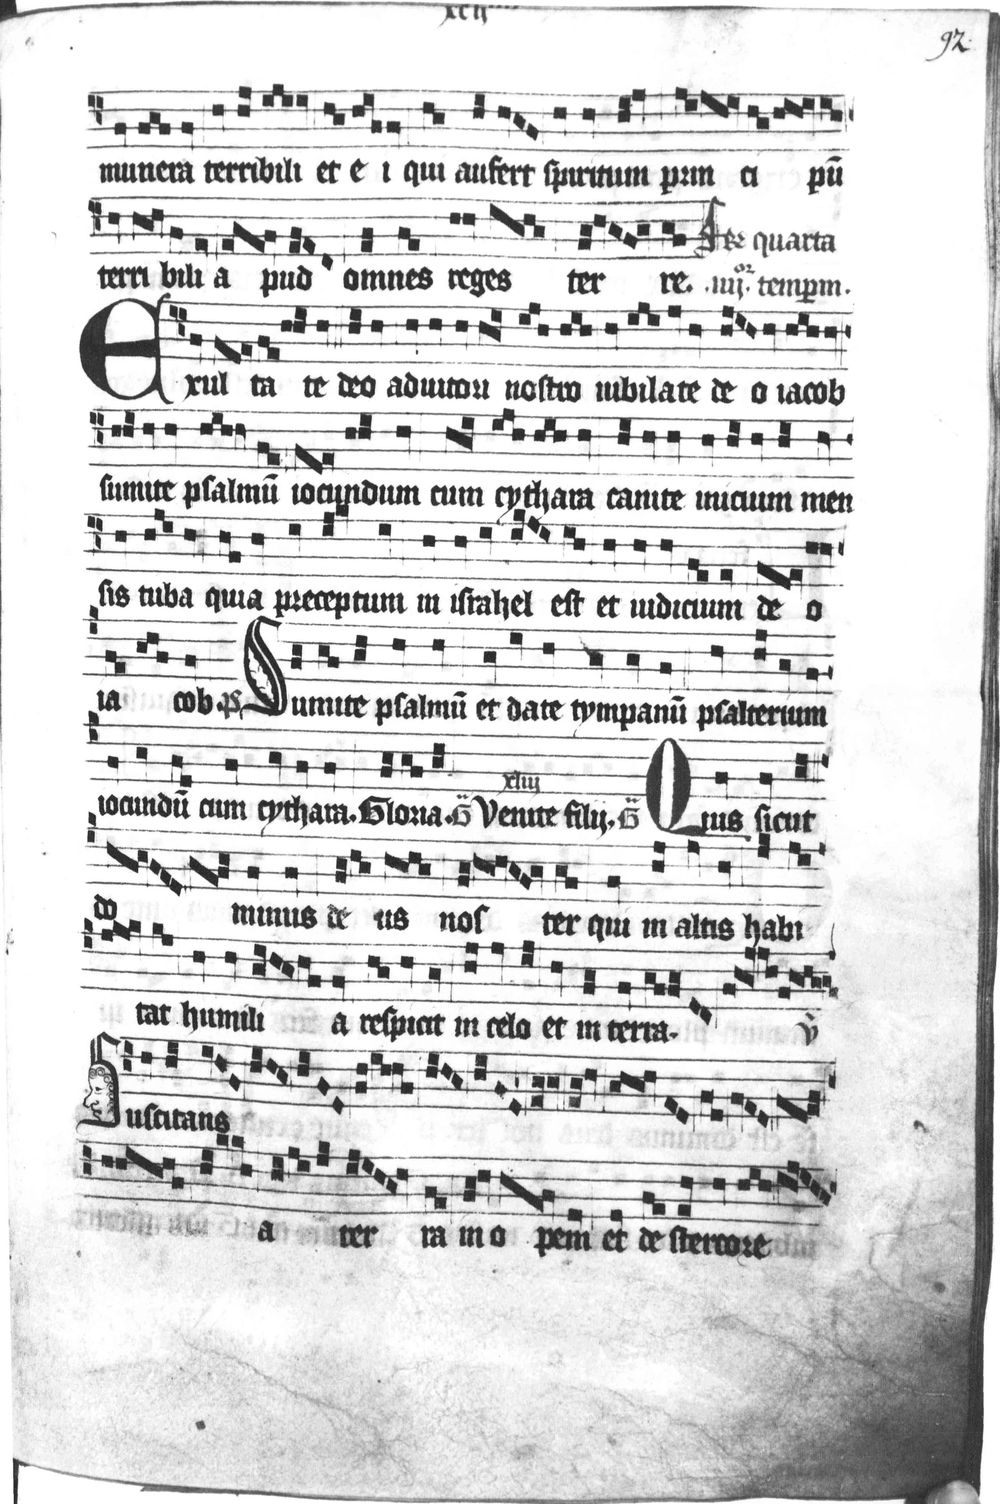 xcij
92.
munera terribili et e i qui aufert spiritum prin ci pū
terri bili a pud omnes reges ter re. Fer quarta
.iiij.or tempm.
Exul ta te deo adiutori nostro iubilate de o iacob
sumite psalmū iocundum cum cythara canite inicium men
sis tuba quia preceptum in israhel est et iudicium de o
ia cob. ps Sumite psalmū et date tympanū psalterium
xliij
iocundū cum cythara. Gloria. G̃ Venite filij. G̃ Quis sicut
do minus de us nos ter qui in altis habi
tat humili a respicit in celo et in terra. v̄
Suscitans
a ter ra in o pem et de stercore